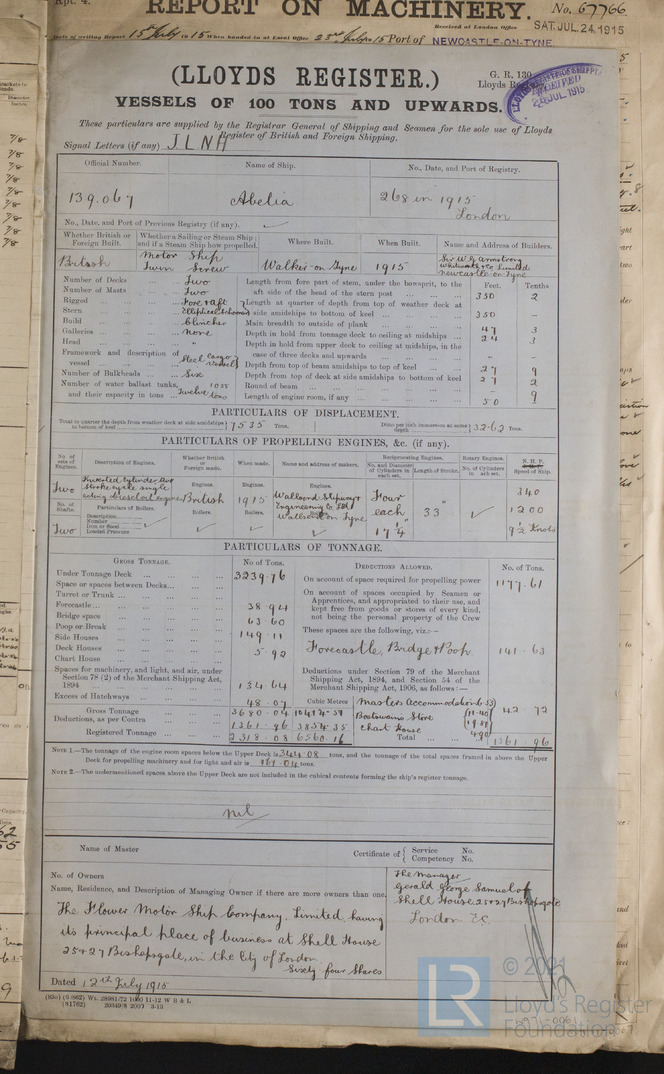 Rpt. 4.
REPORT ON MACHINERY. No. 67766
Date of writing Report 15th July 1915 When handed in at Local Office 23rd July 1915 Port of NEWCASTLE-ON-TYNE
Received at London Office SAT. JUL. 24. 1915
(LLOYDS REGISTER.)
G. R. 130
VESSELS OF 100 TONS AND UPWARDS.
These particulars are supplied by the Registrar General of Shipping and Seamen for the sole use of Lloyds
Register of British and Foreign Shipping.
Signal Letters (if any) JLNH
Official Number. Name of Ship. No., Date, and Port of Registry.
139.067 Abelia 268 in 1915
London
No., Date, and Port of Previous Registry (if any).
Whether British or Foreign Built. Whether a Sailing or Steam Ship; and if a Steam Ship how propelled. Where Built. When Built. Name and Address of Builders.
British Motor Ship Twin Screw Walker-on-Tyne 1915 Sir W G Armstrong Whitworth & Co Limited Newcastle-on-Tyne
Number of Decks Two
Number of Masts Two
Rigged Fore & Aft
Stern Elliptical
Build Clincher
Galleries None
Head "
Framework and description of vessel Steel Cargo Vessel
Number of Bulkheads Six
Number of water ballast tanks, and their capacity in tons Twelve 1035 tons
Feet. Tenths
Length from fore part of stem, under the bowsprit, to the aft side of the head of the stern post 350 2
Length at quarter of depth from top of weather deck at side amidships to bottom of keel 350 -
Main breadth to outside of plank 47 3
Depth in hold from tonnage deck to ceiling at midships 24 3
Depth in hold from upper deck to ceiling at midships, in the case of three decks and upwards - -
Depth from top of beam amidships to top of keel 27 9
Depth from top of deck at side amidships to bottom of keel 27 2
Round of beam - 9
Length of engine room, if any 50
PARTICULARS OF DISPLACEMENT.
Total to quarter the depth from weather deck at side amidships to bottom of keel 7535 Tons.
Ditto per inch immersion at same depth 32.62 Tons.
PARTICULARS OF PROPELLING ENGINES, &c. (if any).
No. of sets of Engines. Description of Engines. Whether British or Foreign made. When made. Name and address of makers. Reciprocating Engines. Rotary Engines. N.H.P.
No. and Diameter of Cylinders in each set. Length of Stroke. No. of Cylinders in each set. Speed of Ship.
Two British 1915 Wallsend Slipway Engineering Co Ltd Wallsend on Tyne Four each 17 1/4" 33" 340
1200
9 1/2 Knots
No. of Shafts. Particulars of Boilers.
Description
Number
Iron or Steel
Loaded Pressure
Two
PARTICULARS OF TONNAGE.
GROSS TONNAGE. No of Tons.
Under Tonnage Deck 3239.76
Space or spaces between Decks
Turret or Trunk
Forecastle 38.94
Bridge space 63.60
Poop or Break 149.11
Side Houses
Deck Houses 5.92
Chart House
Spaces for machinery, and light, and air, under Section 78 (2) of the Merchant Shipping Act, 1894 134.64
Excess of Hatchways 48.07
Cubic Metres
Gross Tonnage 3680.04
Deductions, as per Contra 1361.96 3854.35
Registered Tonnage 2318.08 6560.16
DEDUCTIONS ALLOWED. No. of Tons.
On account of space required for propelling power 1177.61
On account of spaces occupied by Seamen or Apprentices, and appropriated to their use, and kept free from goods or stores of every kind, not being the personal property of the Crew
These spaces are the following, viz:—
Forecastle, Bridge & Poop 141.63
Deductions under Section 79 of the Merchant Shipping Act, 1894, and Section 54 of the Merchant Shipping Act, 1906, as follows:—
Masters Accommodation
Boatswains Store 42.72
Chart House 4.90
Total 1361.96
NOTE 1.—The tonnage of the engine room spaces below the Upper Deck is 344.08 tons, and the tonnage of the total spaces framed in above the Upper
Deck for propelling machinery and for light and air is tons.
NOTE 2.—The undermentioned spaces above the Upper Deck are not included in the cubical contents forming the ship's register tonnage.
nil
Name of Master Certificate of { Service No.
Competency No.
No. of Owners
Name, Residence, and Description of Managing Owner if there are more owners than one.
The Manager
Gerald George Samuel of
Shell House, 25 & 27 Bishopsgate
London EC
The Flower Motor Ship Company, Limited, having
its principal place of business at Shell House
25 & 27 Bishopsgate, in the City of London
Sixty four Shares
Dated 12th July 1915
LR
© 2021
Lloyd's Register
Foundation